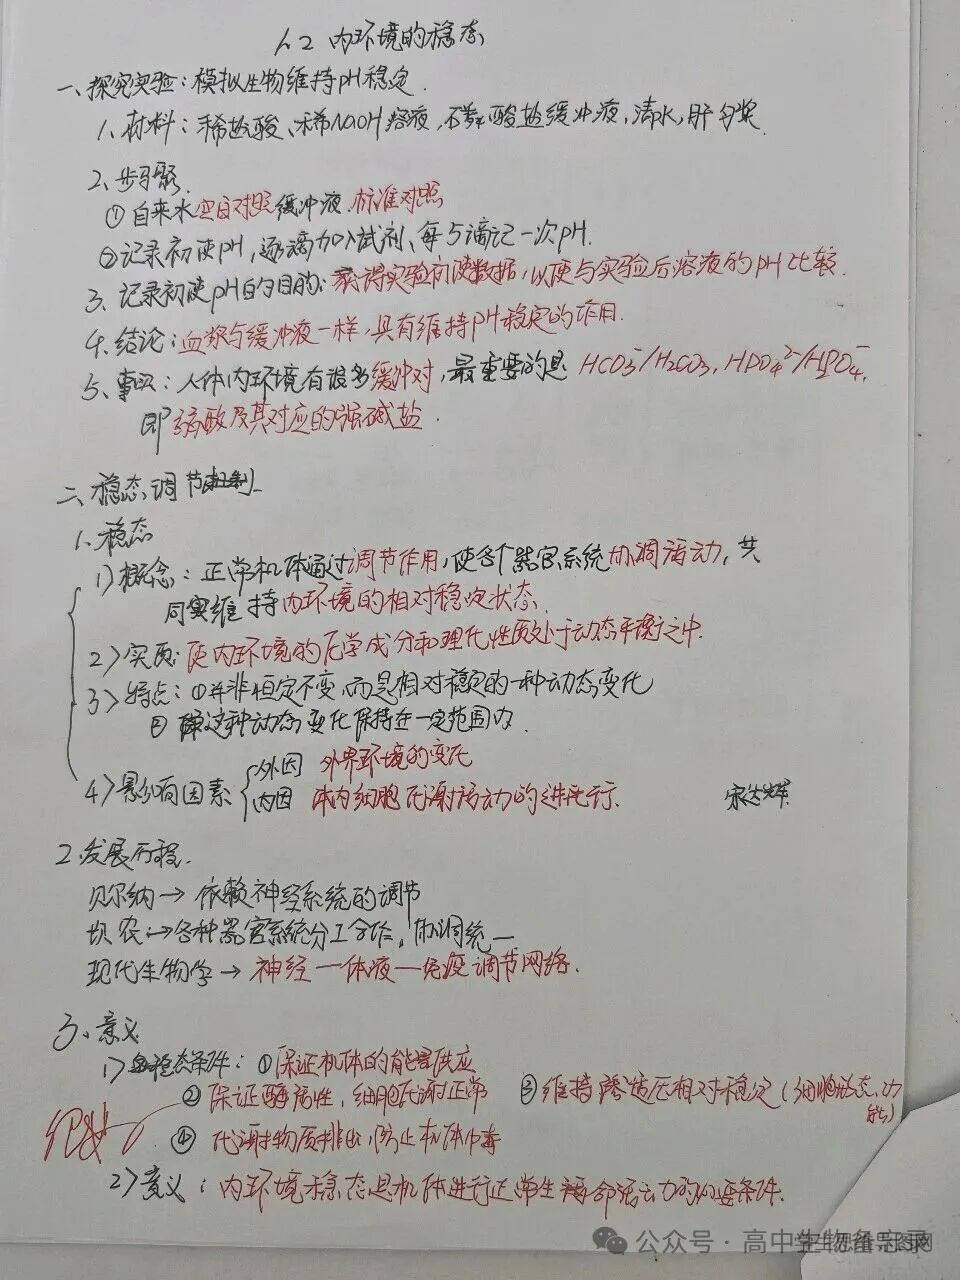 1.2 内环境的稳态
一、探究实验：模拟生物维持pH稳定
1、材料：稀盐酸、稀NaOH溶液，磷酸盐缓冲液，清水，肝匀浆
2、步骤
① 自来水空白对照 缓冲液 标准对照
②记录初使pH，逐滴加入试剂、每5滴记一次pH.
3. 记录初使pH的目的：获得实验初使数据，以便与实验后溶液的pH比较.
4. 结论：血浆与缓冲液一样，具有维持pH稳定的作用.
5、事实：人体内环境有很多缓冲对，最重要的是 HCO₃⁻/H₂CO₃, HPO₄²⁻/H₂PO₄⁻,
即弱酸及其对应的强碱盐.
二、稳态调节机制
1、稳态
1）概念：正常机体通过调节作用，使各个器官系统协调活动，共
同维持内环境的相对稳定状态.
2）实质：使内环境的化学成分和理化性质处于动态平衡之中.
3）特点：①并非恒定不变，而是相对稳定的一种动态变化
② 这种动态变化保持在一定范围内.
4）影响因素
外因 外界环境的变化
内因 体内细胞代谢活动的进行.
2.发展历程.
贝尔纳→ 依赖神经系统的调节
坎农→各种器官系统分工合作，协调统一
现代生物学→ 神经—体液—免疫调节网络.
3、意义
1）稳态条件：①保证机体的能量供应
② 保证酶活性，细胞代谢正常 ③维持渗透压相对稳定（细胞形态、功
能）
④ 代谢物质排出，防止机体中毒
2）意义：内环境稳态是机体进行正常生命活动的必要条件.
公众号·高中生物备忘录